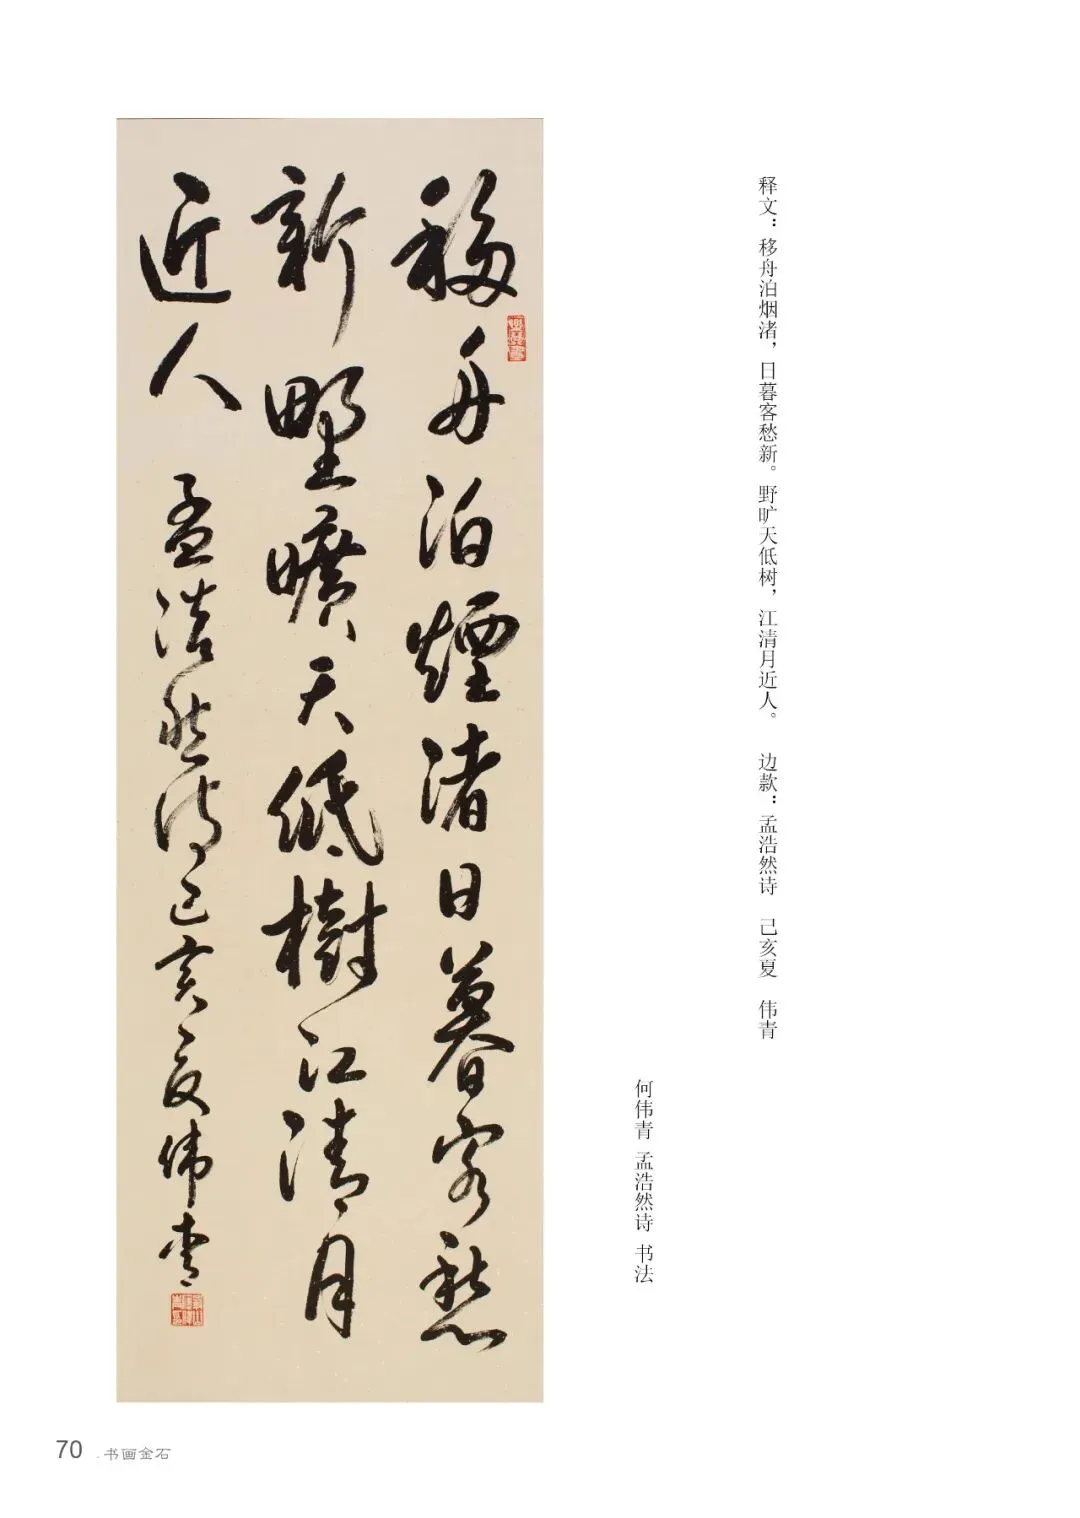 移舟泊煙渚日暮客愁
新野曠天低樹江清月
近人 孟浩然诗己亥夏伟青
释文：移舟泊烟渚，日暮客愁新。野旷天低树，江清月近人。 边款：孟浩然诗 己亥夏 伟青
何伟青 孟浩然诗 书法
70 . 书画金石